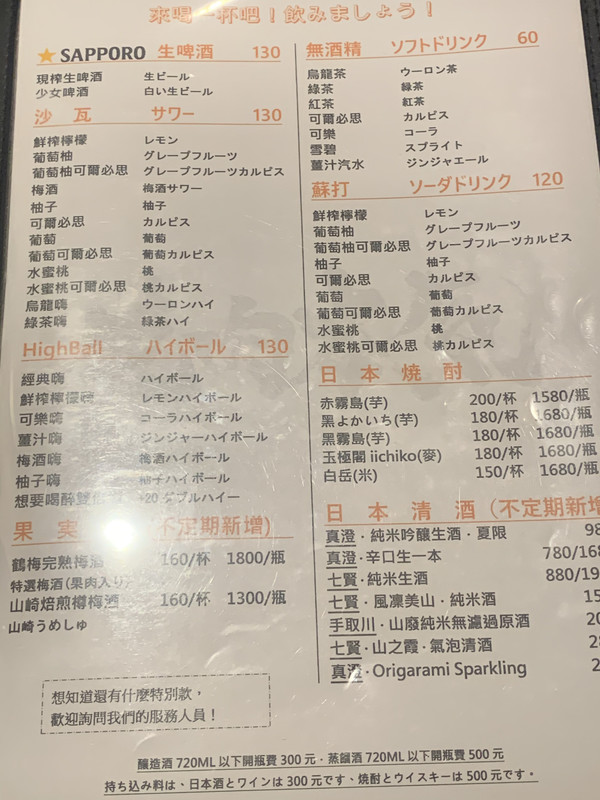 來喝一杯吧！飲みましょう！
★ SAPPORO 生啤酒 130
現榨生啤酒 生ビール
少女啤酒 白い生ビール
沙瓦 サワー 130
鮮榨檸檬 レモン
葡萄柚 グレープフルーツ
葡萄柚可爾必思 グレープフルーツカルピス
梅酒 梅酒サワー
柚子 柚子
可爾必思 カルピス
葡萄 葡萄
葡萄可爾必思 葡萄カルピス
水蜜桃 桃
水蜜桃可爾必思 桃カルピス
烏龍嗨 ウーロンハイ
綠茶嗨 緑茶ハイ
HighBall ハイボール 130
經典嗨 ハイボール
鮮榨檸檬嗨 レモンハイボール
可樂嗨 コーラハイボール
薑汁嗨 ジンジャーハイボール
梅酒嗨 梅酒ハイボール
柚子嗨 柚子ハイボール
想要喝醉雙倍 +20 ダブルハイー
果實 不定期新增)
鶴梅完熟梅酒 160/杯 1800/瓶
特選梅酒(果肉入り)
山崎焙煎樽梅酒 160/杯 1300/瓶
山崎うめしゅ
想知道還有什麼特別款，
歡迎詢問我們的服務人員！
無酒精 ソフトドリンク 60
烏龍茶 ウーロン茶
綠茶 緑茶
紅茶 紅茶
可爾必思 カルピス
可樂 コーラ
雪碧 スプライト
薑汁汽水 ジンジャエール
蘇打 ソーダドリンク 120
鮮榨檸檬 レモン
葡萄柚 グレープフルーツ
葡萄柚可爾必思 グレープフルーツカルピス
柚子 柚子
可爾必思 カルピス
葡萄 葡萄
葡萄可爾必思 葡萄カルピス
水蜜桃 桃
水蜜桃可爾必思 桃カルピス
日本燒酎
赤霧島(芋) 200/杯 1580/瓶
黑よかいち(芋) 180/杯 1680/瓶
黑霧島(芋) 180/杯 1680/瓶
玉極閣 iichiko(麥) 180/杯 1680/瓶
白岳(米) 150/杯 1680/瓶
日本清酒(不定期新增
真澄・純米吟釀生酒・夏限 98
真澄・辛口生一本 780/168
七賢・純米生酒 880/19
七賢・風凜美山・純米酒 15
手取川・山廢純米無濾過原酒 20
七賢・山之霞・氣泡清酒 2
真澄・Origarami Sparkling 2
釀造酒 720ML 以下開瓶費 300 元・蒸餾酒 720ML 以下開瓶費 500 元
持ち込み料は、日本酒とワインは 300 元です、焼酎とウイスキーは 500 元です。